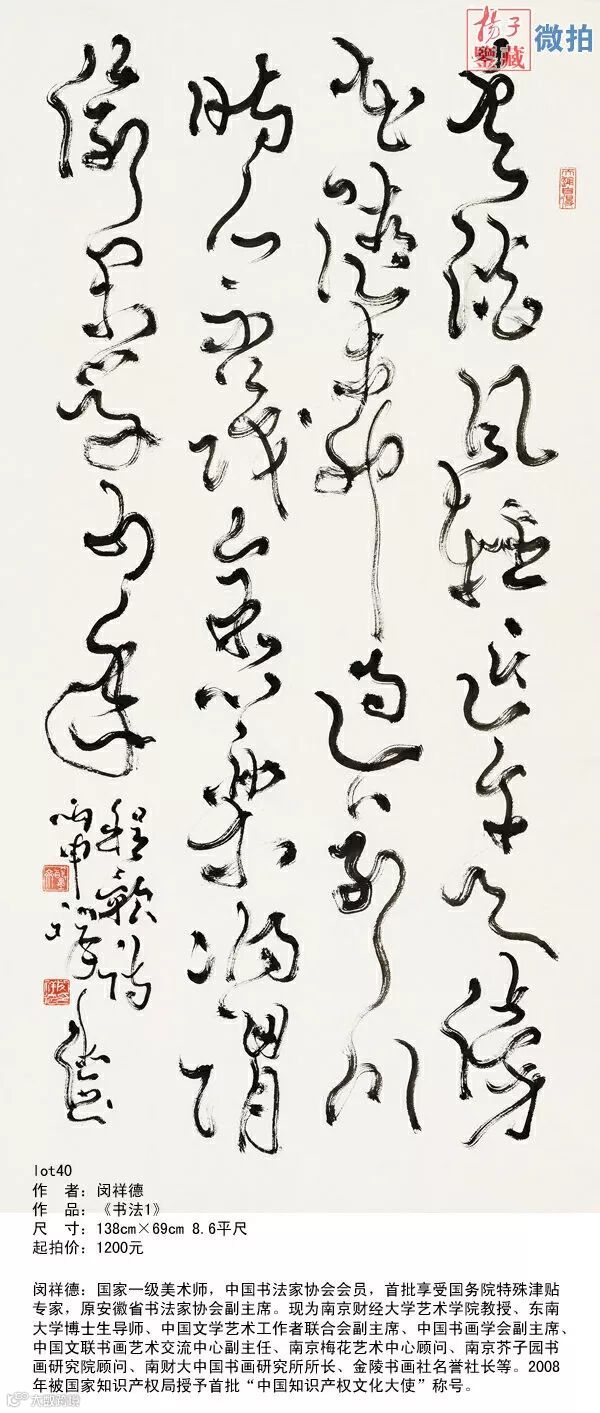 揚子
鑒藏
微拍
雲淡風輕近午天傍
花隨柳過前川
時人不識余心樂將謂
偷閑學少年
程颢詩
丙申祥德
lot40
作 者：闵祥德
作 品：《书法1》
尺 寸：138cm×69cm 8.6平尺
起拍价：1200元
闵祥德：国家一级美术师，中国书法家协会会员，首批享受国务院特殊津贴
专家，原安徽省书法家协会副主席。现为南京财经大学艺术学院教授、东南
大学博士生导师、中国文学艺术工作者联合会副主席、中国书画学会副主席、
中国文联书画艺术交流中心副主任、南京梅花艺术中心顾问、南京芥子园书
画研究院顾问、南财大中国书画研究所所长、金陵书画社名誉社长等。2008
年被国家知识产权局授予首批“中国知识产权文化大使”称号。